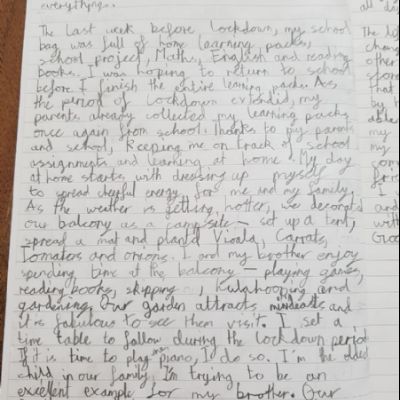 everything..
The last week before lockdown, my school
bag was full of home learning packs,
school project, Maths, English and reading
books. I was hoping to return to school
before I finish the entire learning packs. As
the period of lockdown extended, my
parents already collected my learning packs
once again from school. Thanks to my parents
and school, keeping me on track of school
assignments and learning at home. My day
at home starts with dressing up myself
to spread cheyful energy for me and my family.
As the weather is getting hotter, we decorated
our balcony as a campsite – set up a tent,
spread a mat and planted Viola, Carrots,
Tomatos and onions. I and my brother enjoy
spending time at the balcony – playing games,
reading books, skipping, hulahooping and
gardening. Our garden attracts and
it is fabulous to see them visit. I set a
time table to follow during the lockdown period
If it is time to play piano, I do so. I'm the oldest
child in our family, I'm trying to be an
excellent example for my brother. Our
all
The
other
that
by
able
my
my
my
I
and
with